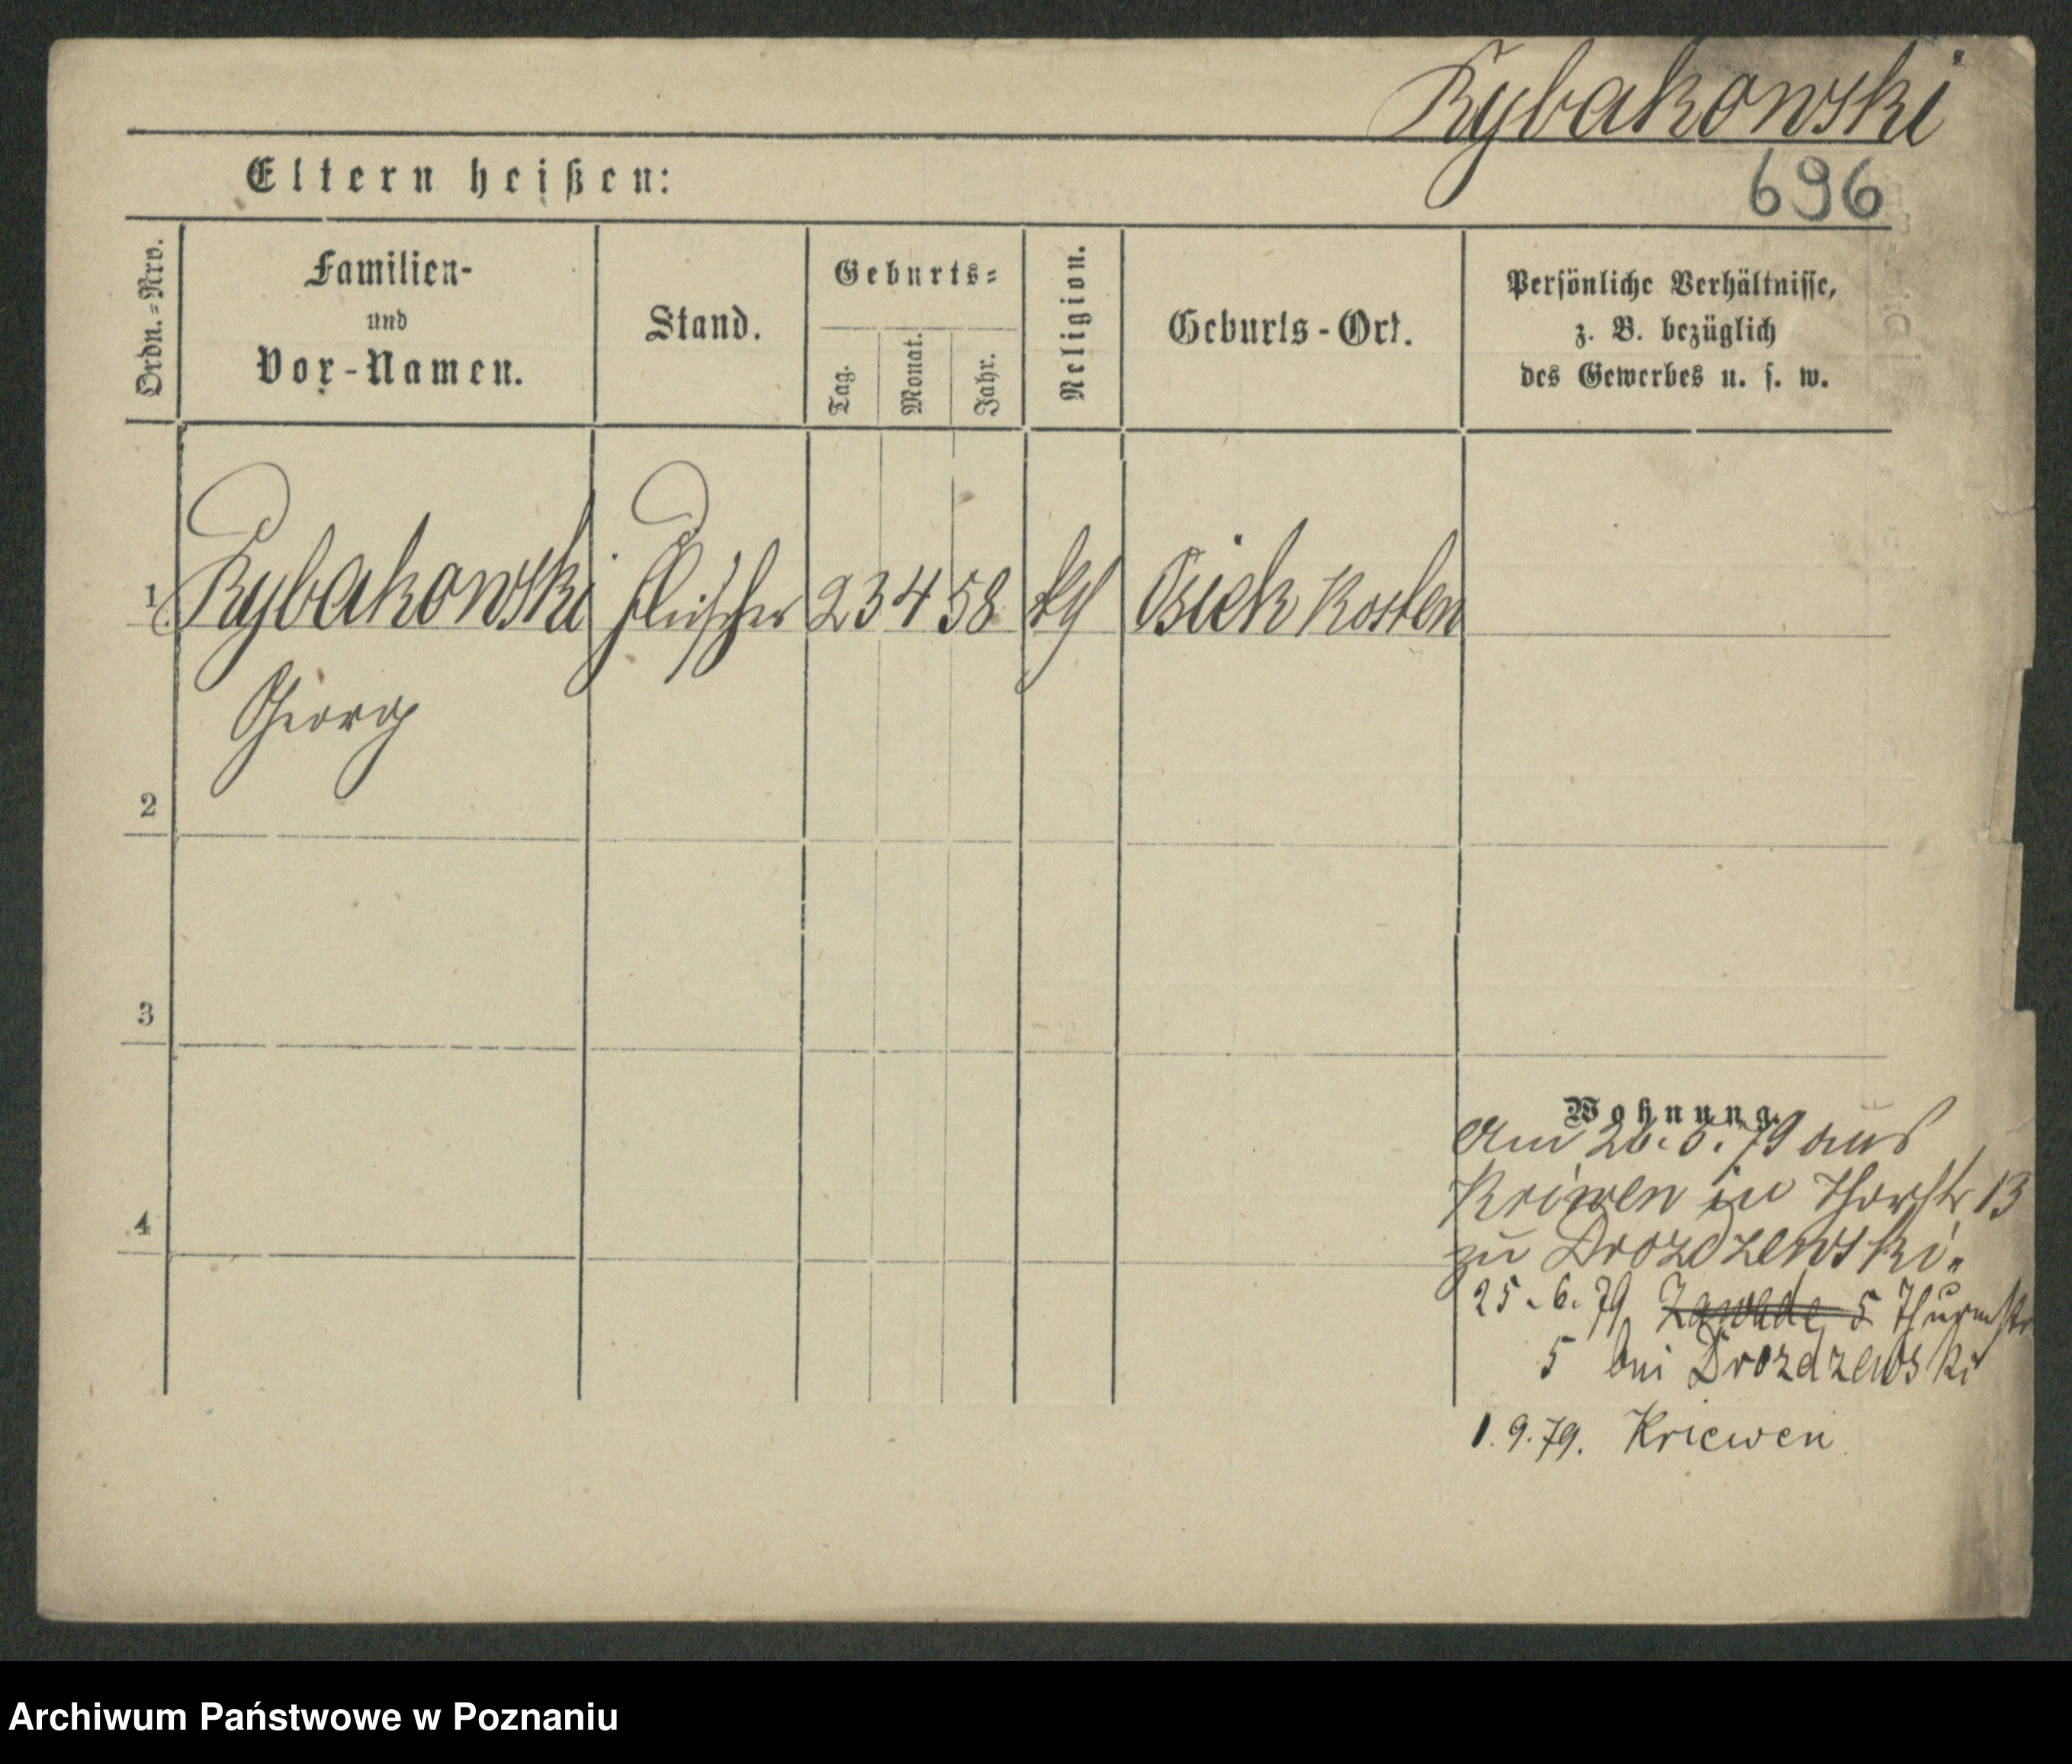 Rybakowski
696
Eltern heißen:
Ordn.=Nro.
Familien-
und
Vor-Namen.
Stand.
Geburts=
Tag.
Monat.
Jahr.
Religion.
Geburts-Ort.
Persönliche Verhältnisse,
z. B. bezüglich
des Gewerbes u. s. w.
1 Rybakowski Fleischer 23 4 58 kth Osiek Kosten
Georg
2
3
4
Wohnung.
Am 26.5.79 aus
Kriwen in Thorstr 13
zu Drozdzewski.
25.6.79 Zawade 5 Thurmstr
5 bei Drozdzewski
1.9.79. Kriewen
Archiwum Państwowe w Poznaniu